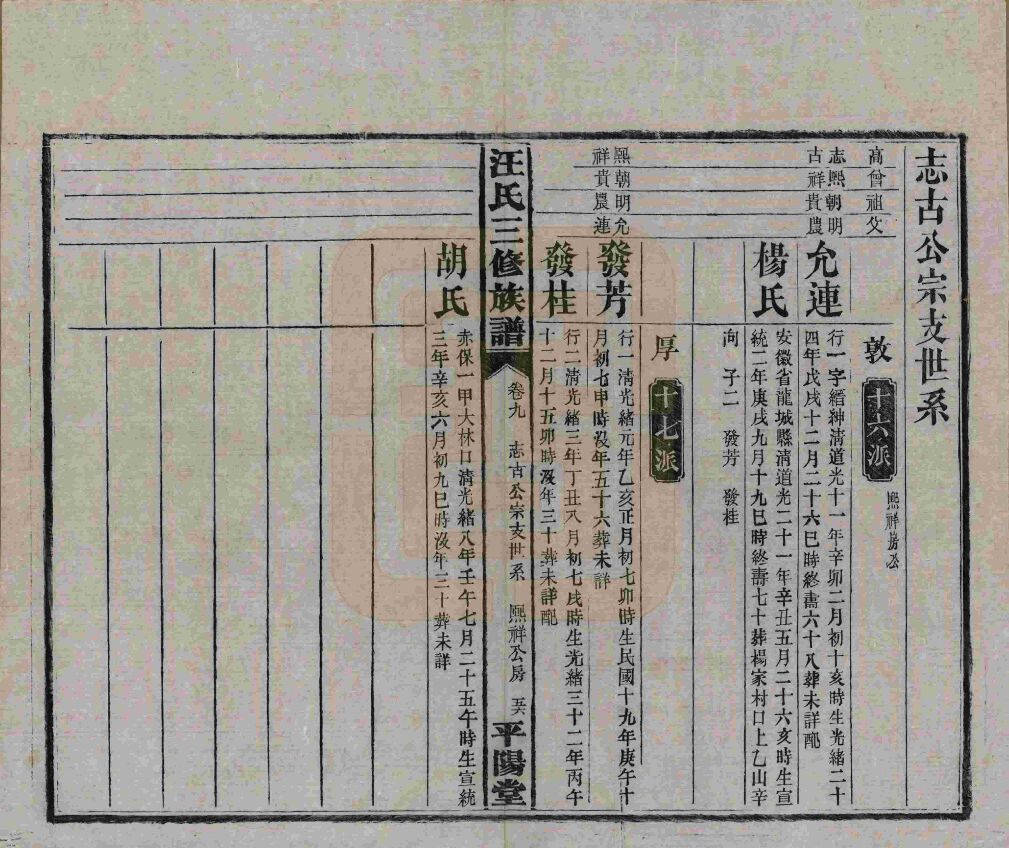 志古公宗支世系
高曾祖父
敦 十六派 熙祥房公
志熙朝明
古祥貴農
允連
行一字縉紳清道光十一年辛卯二月初十亥時生光緒二十
四年戊戌十二月二十六巳時終壽六十八葬未詳配
楊氏
安徽省龍城縣清道光二十一年辛丑五月二十六亥時生宣
統二年庚戌九月十九巳時終壽七十葬楊家村口上乙山辛
向 子二 發芳 發桂
厚 十七派
熙朝明允
祥貴農連
發芳
行一清光緒元年乙亥正月初七卯時生民國十九年庚午十
月初七申時沒年五十六葬未詳
發桂
行二清光緒三年丁丑八月初七戌時生光緒三十二年丙午
十二月十五卯時沒年三十葬未詳配
汪氏三修族譜 卷九 志古公宗支世系 熙祥公房 五六 平陽堂
胡氏
赤保一甲大林口清光緒八年壬午七月二十五午時生宣統
三年辛亥六月初九巳時沒年三十葬未詳